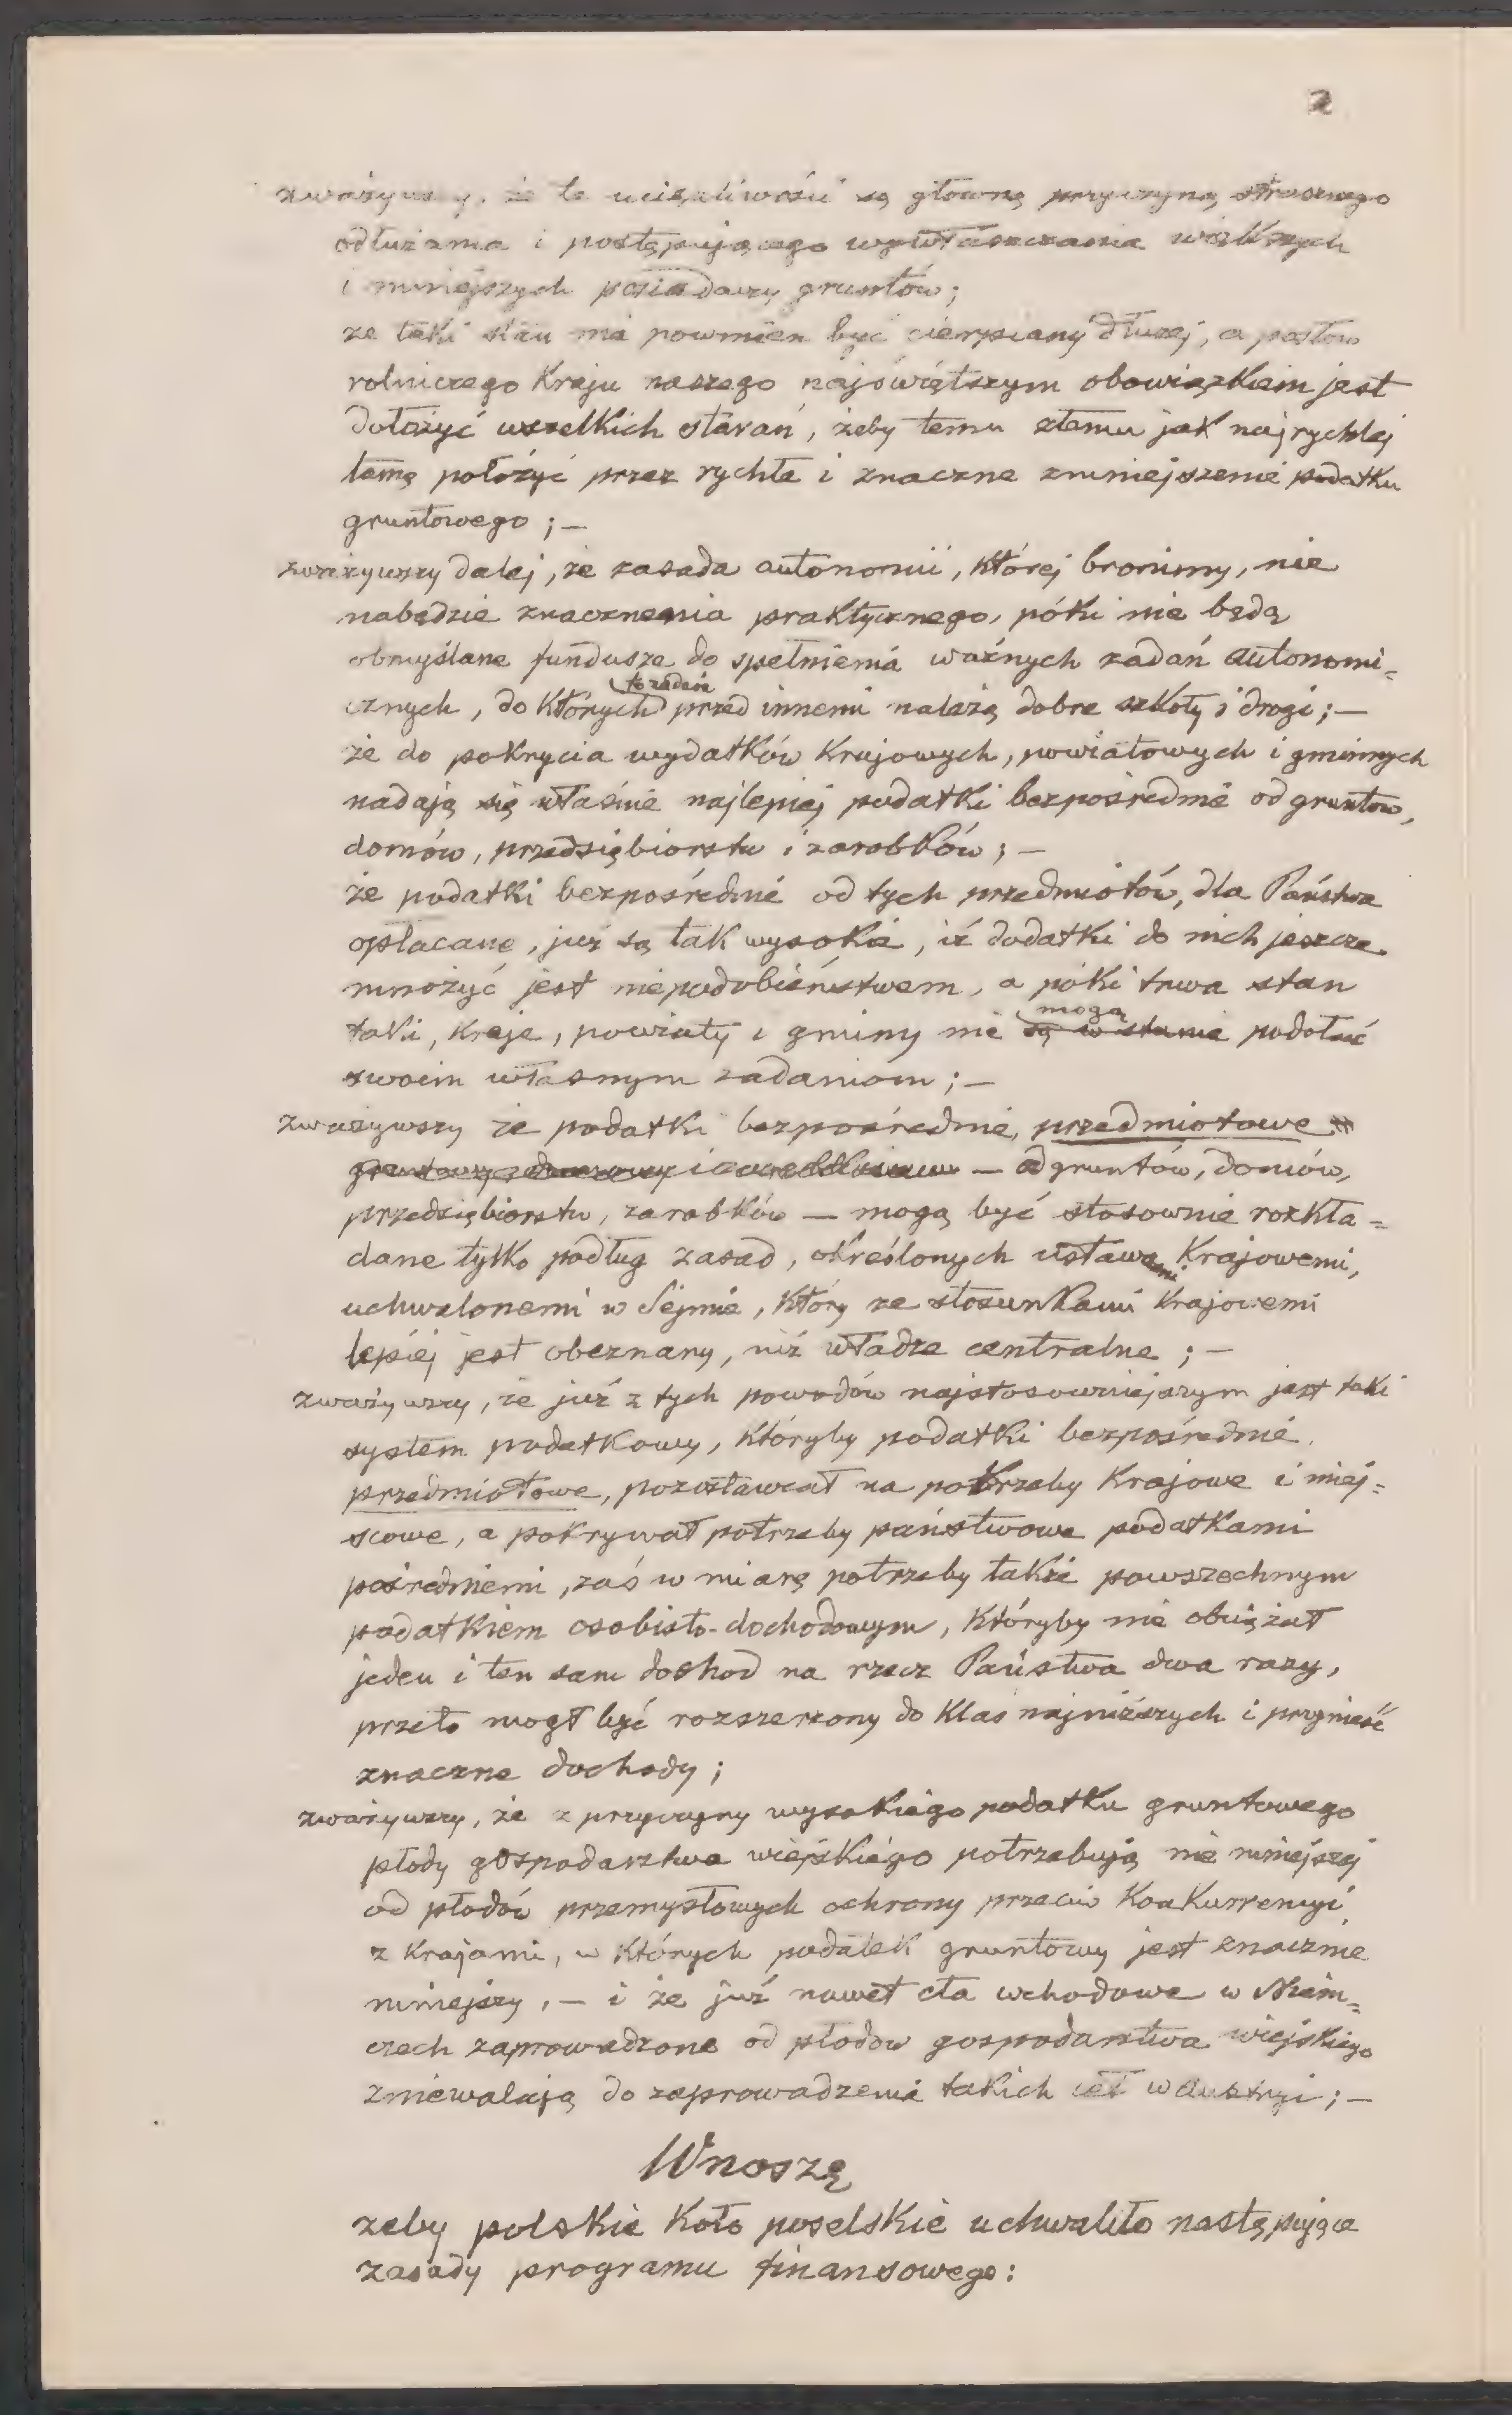 2
zważywszy, że te uciążliwości są główną przyczyną strasznego
odłużenia i postępującego wywłaszczania większych
i mniejszych posiadaczy gruntów;
że taki stan nie powinien być cierpiany dłużej, a posłów
rolniczego Kraju naszego najświętszym obowiązkiem jest
dołożyć wszelkich starań, żeby temu złemu jak najrychlej
tamę położyć przez rychłe i znaczne zmniejszenie podatku
gruntowego ; —
zważywszy dalej, że zasada autonomii, której bronimy, nie
nabędzie znaczenia praktycznego, póki nie będą
obmyślane fundusze do spełnienia ważnych zadań autonomi=
cznych, do których przed innemi należą dobre szkoły i drogi ; —
że do pokrycia wydatków Krajowych, powiatowych i gminnych
nadają się właśnie najlepiej podatki bezpośrednie od gruntów,
domów, przedsiębiorstw i zarobków ; —
że podatki bezpośrednie od tych przedmiotów, dla Państwa
opłacane, już są tak wysokie, iż dodatki do nich jeszcze
mnożyć jest niepodobieństwem, a póki trwa stan
mogą
taki, Kraje, powiaty i gminy nie są w stanie podołać
swoim własnym zadaniom ; —
zważywszy że podatki bezpośrednie, przedmiotowe
— od gruntów, domów,
przedsiębiorstw, zarobków — mogą być stosownie rozkła=
dane tylko podług zasad, określonych ustawami Krajowemi,
uchwalonemi w Sejmie, który ze stosunkami Krajowemi
lepiej jest obeznany, niż władze centralne ; —
zważywszy, że już z tych powodów najstosowniejszym jest taki
system podatkowy, któryby podatki bezpośrednie
przedmiotowe, pozostawiał na potrzeby Krajowe i miej=
scowe, a pokrywał potrzeby państwowe podatkami
pośredniemi, zaś w miarę potrzeby także powszechnym
podatkiem osobisto-dochodowym, któryby nie obciążał
jeden i ten sam dochod na rzecz Państwa dwa razy,
przeto mogł być rozszerzony do Klas najniższych i przynieść
znaczne dochody ;
zważywszy, że z przyczyny wysokiego podatku gruntowego
płody gospodarstwa wiejskiego potrzebują nie mniejszej
od płodów przemysłowych ochrony przeciw Konkurrencyi
z Krajami, w których podatek gruntowy jest znacznie
mniejszy, — i że już nawet cła wchodowe w Niem=
czech zaprowadzone od płodów gospodarstwa wiejskiego
zniewalają do zaprowadzenia takich ceł w Austryi ; —
Wnoszę
żeby polskie Koło poselskie uchwaliło następujące
zasady programu finansowego :